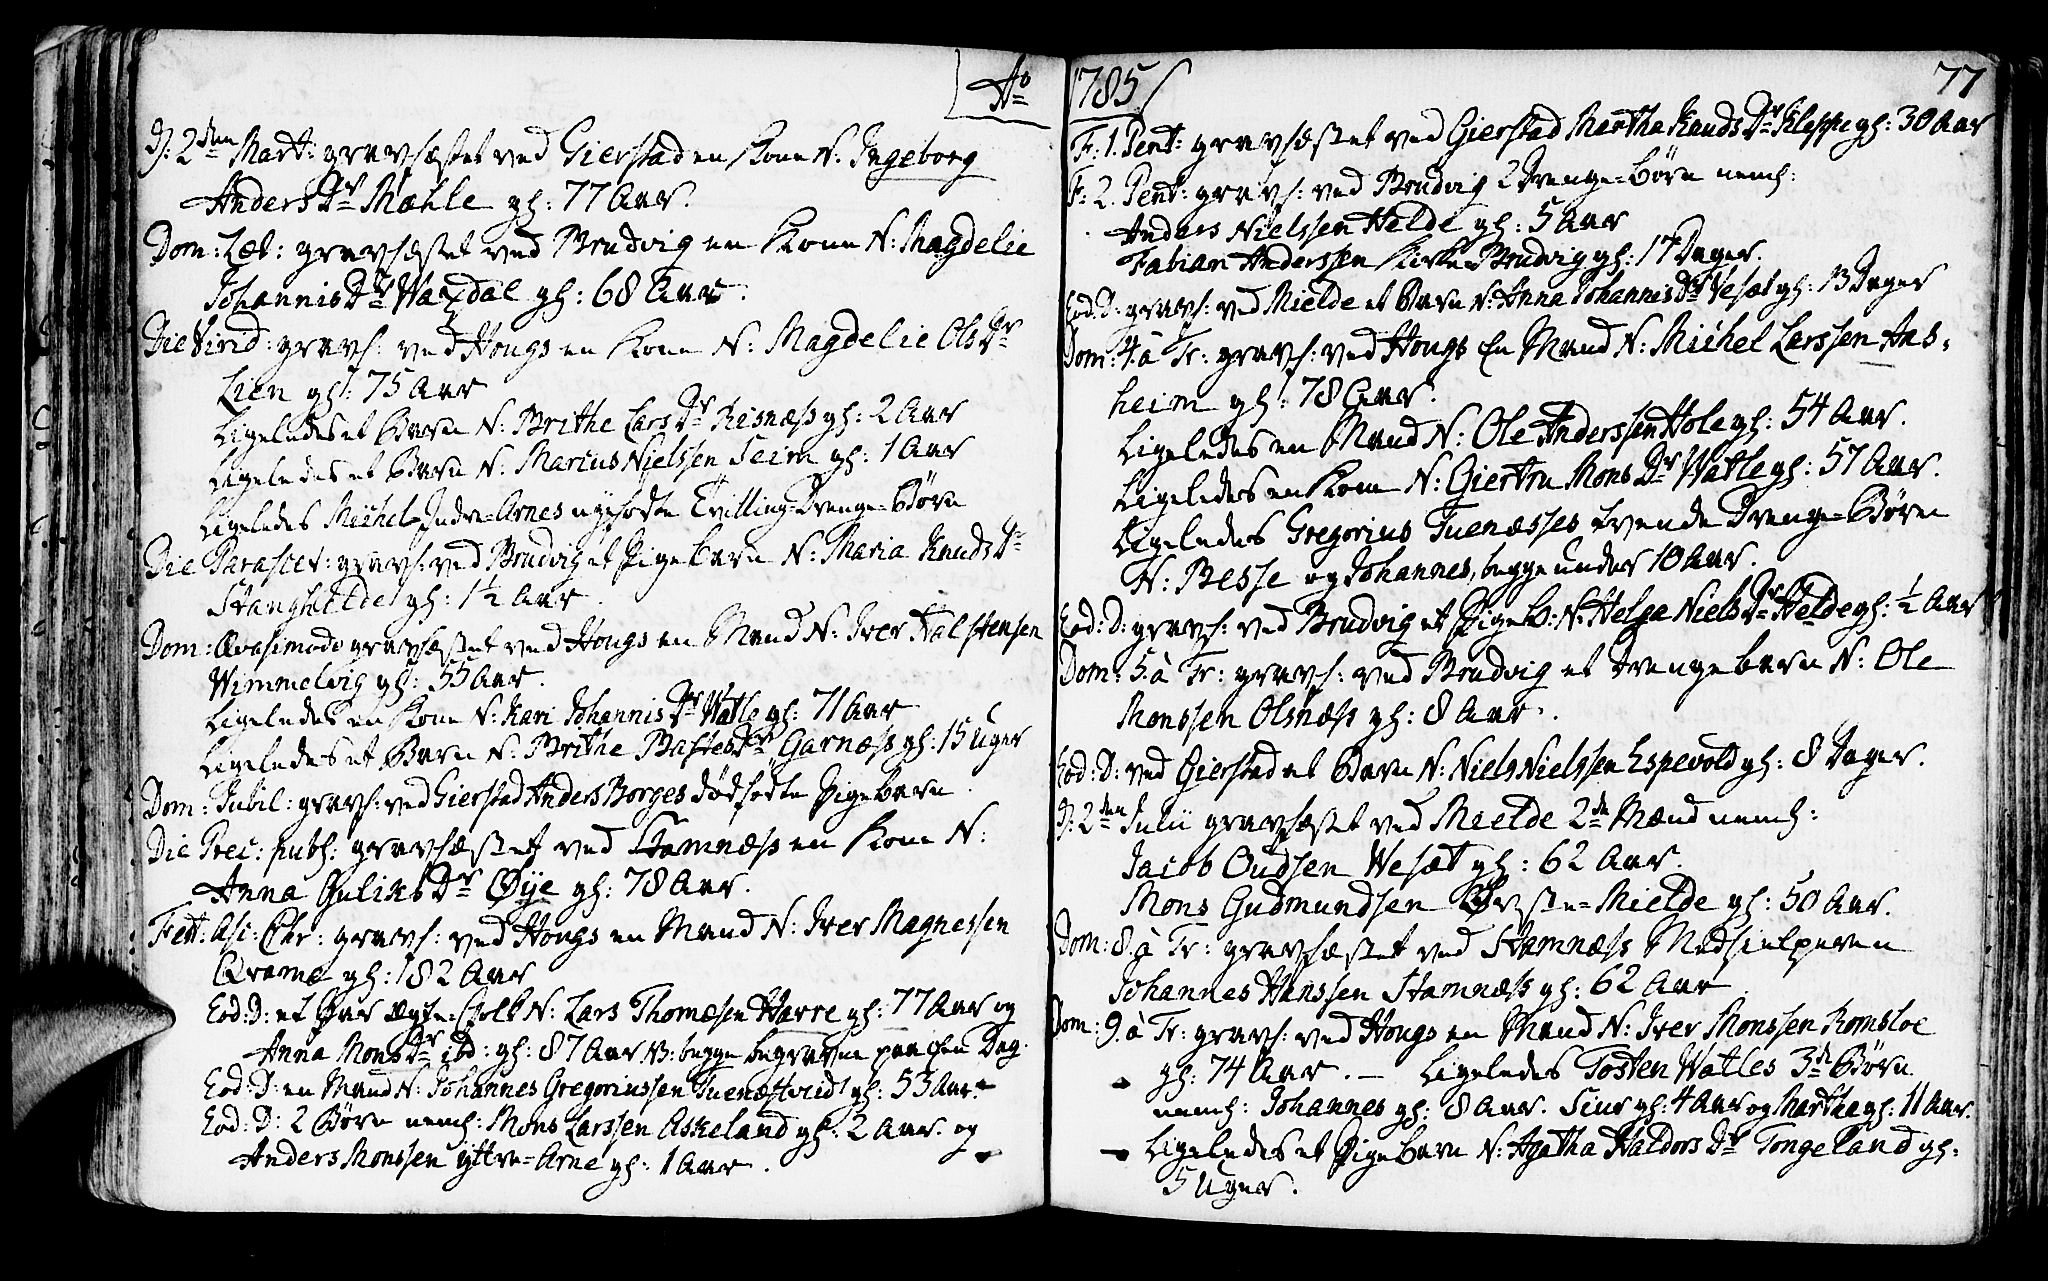 Ao 1785
77
D: 2den Mart: gravfæstet ved Gierstad en Kone N: Ingeborg
Anders Dr Mæhle gl: 77 Aar.
Dom: Læt: gravfæstet ved Brudvig en Kone N: Magdelie
Johannis Dr Waxdal gl: 68 Aar.
Die Virid: gravf: ved Hougs en Kone N: Magdelie Ols Dr
Lien gl: 75 Aar
Ligeledes et Barn N: Brithe Lars Dr Resnæss gl: 2 Aar
Ligeledes et Barn N: Marcus Nielssen Seim gl: 1 Aar
Ligeledes Michel Indre-Arnes nyefødte Tvilling-Drenge-Børn
Die Parascev: gravf: ved Brudvig et Pigebarn N: Maria Knuds Dr
Stanghelde gl: 1½ Aar.
Dom: Qvasimodo gravfæstet ved Hougs en Mand N: Iver Halstensen
Wimmelvig gl: 55 Aar.
Ligeledes en Kone N: Kari Johannis Dr Watle gl: 71 Aar
Ligeledes et Barn N: Brithe Bastes Dr Garnæss gl: 15 Uger
Dom: Jubil: gravf: ved Gierstad Anders Borges dødfødte Pigebarn.
Die Prec: publ: gravfæstet ved Stamnæss en Kone N:
Anna Guliks Dr Øije gl: 78 Aar.
Fest: Asc: Chr: gravf: ved Hougs en Mand N: Iver Magnessen
Qvamme gl: 82 Aar
Eod: D: et Par Ægte-Folk N: Lars Thomæsen Harre gl: 77 Aar og
Anna Mons Dr ibd: gl: 87 Aar NB: begge begravne paa een Dag.
Eod: D: en Mand N: Johannes Gregoriussen Tuenæstvid gl: 53 Aar.
Eod: D: 2 Børn neml: Mons Larssen Askeland gl: 2 Aar. og
Anders Monssen yttre-Arne gl: 1 Aar.
F: 1. Pent: gravfæstet ved Gierstad Martha Knuds Dr Kleppe gl: 30 Aar
F: 2. Pent: gravf: ved Brudvig 2 Drenge-Børn neml:
Anders Nielssen Helde gl: 5 Aar
Fabian Anderssen Kirke-Brudvig gl: 17 Dager.
Eod: D: gravf: ved Mielde et Barn N: Anna Johannis Dr Vesæt gl: 13 Dager
Dom: 4 à Tr: gravf: ved Hougs En Mand N: Michel Larssen Aas-
heim gl: 78 Aar.
Ligeledes en Mand N: Ole Anderssen Hole gl: 54 Aar.
Ligeledes en Kone N: Giertru Mons Dr Watle gl: 57 Aar.
Ligeledes Gregorius Tuenæsses tvende Drenge-Børn
N: Besse og Johannes, begge under 10 Aar.
Eod: D: gravf: ved Brudvig et Pigeb: N: Helga Niels Dr Helde gl: ½ Aar
Dom: 5. à Tr: gravf: ved Brudvig et Drengebarn N: Ole
Monssen Olsnæss gl: 8 Aar.
Eod: D: ved Gierstad et Barn N: Niels Nielssen Espevold gl: 8 Dager.
D: 2den Julii gravfæstet ved Mielde 2de Mænd neml:
Jacob Oudsen Wesæt gl: 62 Aar.
Mons Gudmundsen Øvste-Mielde gl: 50 Aar.
Dom: 8. à Tr: gravfæstet ved Stamnæss Medhielperen
Johannes Hanssen Stamnæss gl: 62 Aar.
Dom: 9. à Tr: gravf: ved Hougs en Mand N: Iver Monssen Romsloe
gl: 74 Aar. — Ligeledes Tosten Watles 3de Børn
neml: Johannes gl: 8 Aar. Siur gl: 4 Aar og Martha gl: 11 Aar.
Ligeledes et Pigebarn N: Agatha Haldors Dr Tongeland gl:
5 Uger.